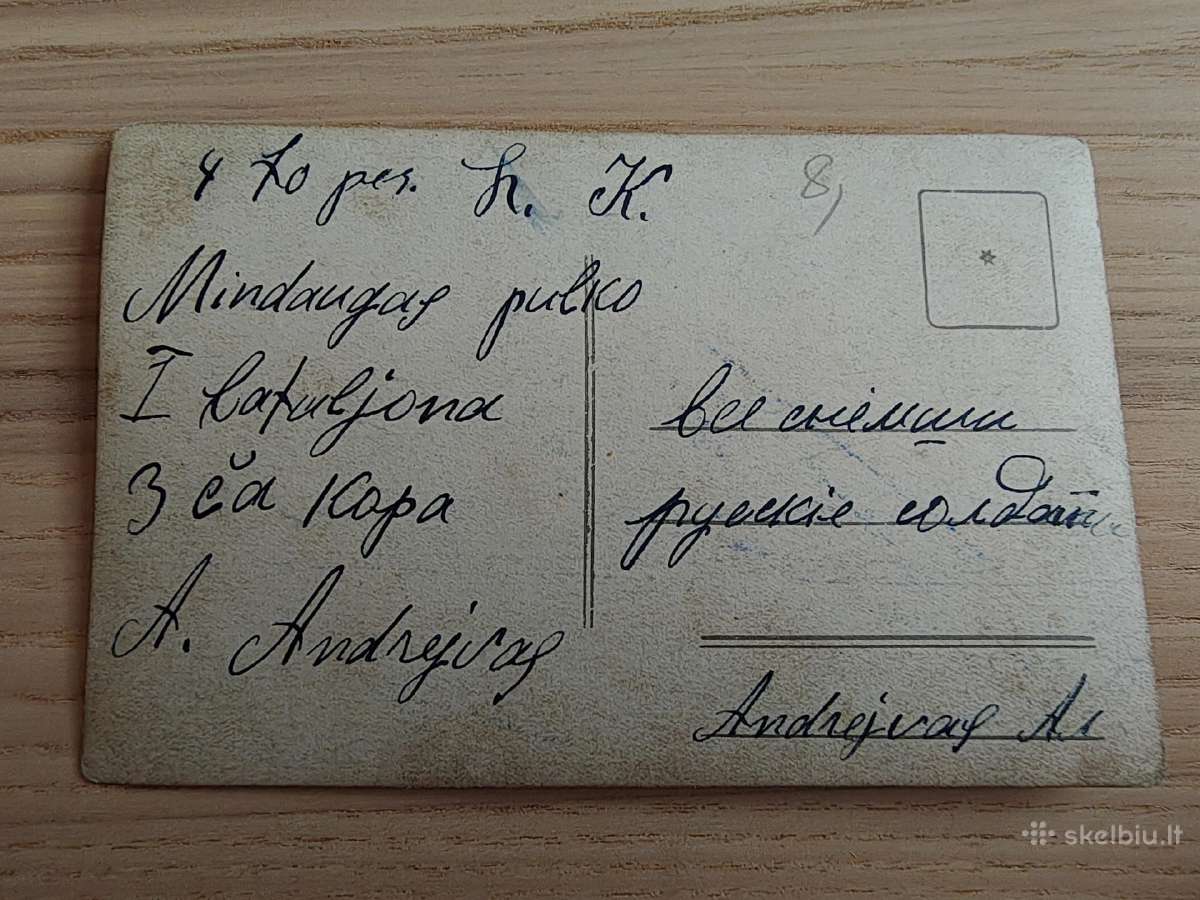 4 to pės. L. K.
Mindaugas pulko
I bataljona
3 čia kopa
A. Andrejvas
8,
все
русскіе солдаты
Andrejvas Al
skelbiu.lt